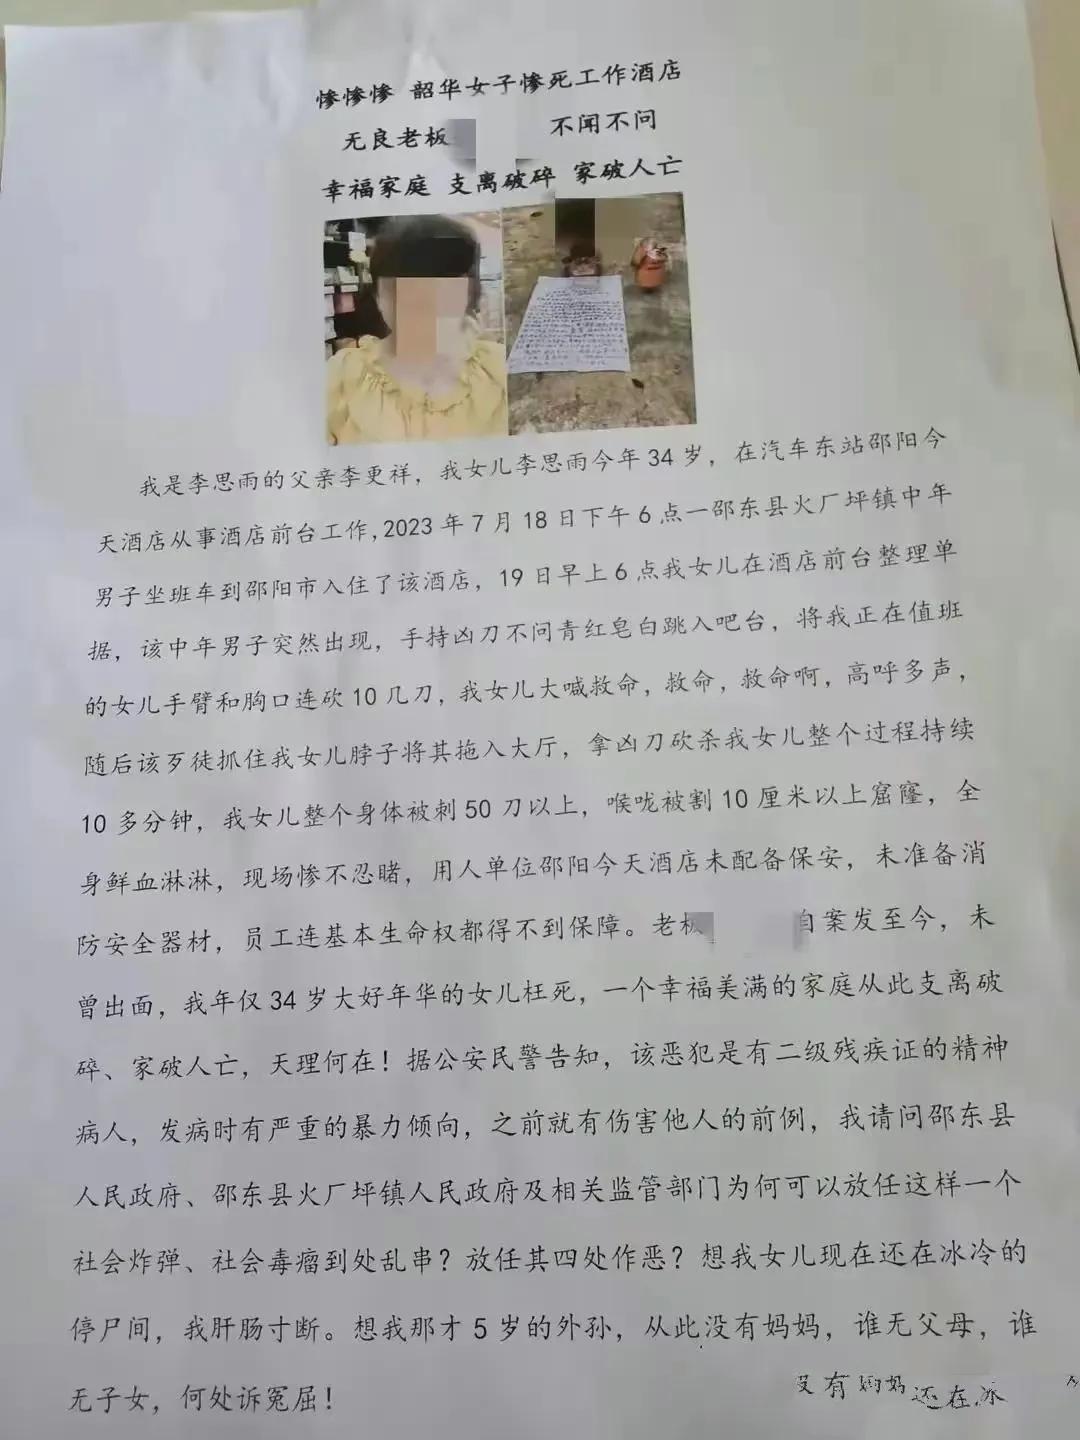 惨惨惨 韶华女子惨死工作酒店
无良老板 不闻不问
幸福家庭 支离破碎 家破人亡
我是李思雨的父亲李更祥，我女儿李思雨今年34岁，在汽车东站邵阳今
天酒店从事酒店前台工作,2023年7月18日下午6点一邵东县火厂坪镇中年
男子坐班车到邵阳市入住了该酒店，19日早上6点我女儿在酒店前台整理单
据，该中年男子突然出现，手持凶刀不问青红皂白跳入吧台，将我正在值班
的女儿手臂和胸口连砍10几刀，我女儿大喊救命，救命，救命啊，高呼多声，
随后该歹徒抓住我女儿脖子将其拖入大厅，拿凶刀砍杀我女儿整个过程持续
10多分钟，我女儿整个身体被刺50刀以上，喉咙被割10厘米以上窟窿，全
身鲜血淋淋，现场惨不忍睹，用人单位邵阳今天酒店未配备保安，未准备消
防安全器材，员工连基本生命权都得不到保障。老板 自案发至今，未
曾出面，我年仅34岁大好年华的女儿枉死，一个幸福美满的家庭从此支离破
碎、家破人亡，天理何在！据公安民警告知，该恶犯是有二级残疾证的精神
病人，发病时有严重的暴力倾向，之前就有伤害他人的前例，我请问邵东县
人民政府、邵东县火厂坪镇人民政府及相关监管部门为何可以放任这样一个
社会炸弹、社会毒瘤到处乱串？放任其四处作恶？想我女儿现在还在冰冷的
停尸间，我肝肠寸断。想我那才5岁的外孙，从此没有妈妈，谁无父母，谁
无子女，何处诉冤屈！
没有妈妈 还在冰